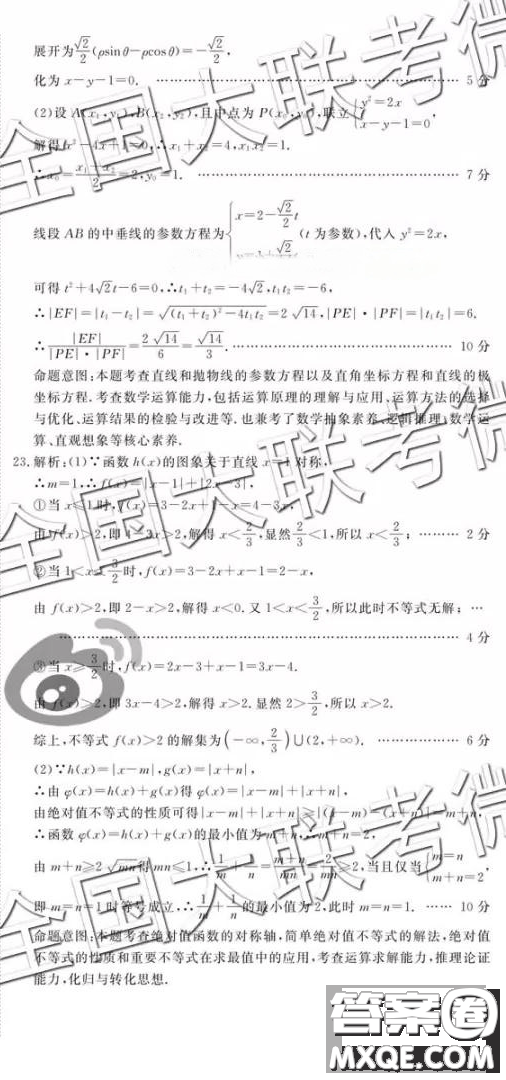 展开为√2/2(ρsin θ-ρcos θ)=-√2/2,
化为 x-y-1=0. …… 5 分
(2)设 A(x₁,y₁),B(x₂,y₂),且中点为 P(x₀,y₀),联立{y²=2x, x-y-1=0,
解得 x²-4x+1=0,∴x₁+x₂=4,x₁x₂=1.
∴x₀=(x₁+x₂)/2=2,y₀=1. …… 7 分
线段 AB 的中垂线的参数方程为{x=2-√2/2 t, (t 为参数),代入 y²=2x,
可得 t²+4√2t-6=0,∴t₁+t₂=-4√2,t₁t₂=-6,
∴|EF|=|t₁-t₂|=√((t₁+t₂)²-4t₁t₂)=2√14,|PE|·|PF|=|t₁t₂|=6.
∴|EF|/(|PE|·|PF|)=2√14/6=√14/3. …… 10 分
命题意图:本题考查直线和抛物线的参数方程以及直角坐标方程和直线的极
坐标方程.考查数学运算能力,包括运算原理的理解与应用、运算方法的选择
与优化、运算结果的检验与改进等.也兼考了数学抽象素养、逻辑推理、数学运
算、直观想象等核心素养.
23.解析:(1)∵函数 h(x)的图象关于直线 x=1 对称,
∴m=1,∴f(x)=|x-1|+|2x-3|,
①当 x≤1 时,f(x)=3-2x+1-x=4-3x,
由 f(x)>2,即 4-3x>2,解得 x<2/3,显然 2/3<1,所以 x<2/3; …… 2 分
②当 1<x≤3/2 时,f(x)=3-2x+x-1=2-x,
由 f(x)>2,即 2-x>2,解得 x<0.又 1<x<3/2,所以此时不等式无解; …
…… 4 分
③当 x≥3/2 时,f(x)=2x-3+x-1=3x-4.
由 f(x)>2,即 3x-4>2,解得 x>2.显然 2>3/2,所以 x>2.
综上,不等式 f(x)>2 的解集为(-∞,2/3)∪(2,+∞). …… 6 分
(2)∵h(x)=|x-m|,g(x)=|x+n|,
∴由 φ(x)=h(x)+g(x)得 φ(x)=|x-m|+|x+n|,
由绝对值不等式的性质可得|x-m|+|x+n|≥|(x-m)-(x+n)|=m+n,
∴函数 φ(x)=h(x)+g(x)的最小值为 m+n,∴m+n=2,
由 m+n≥2√mn得 mn≤1,∴1/m+1/n=(m+n)/mn=2/mn≥2,当且仅当{m=n, m+n=2,
即 m=n=1 时等号成立,∴1/m+1/n的最小值为 2,此时 m=n=1. …… 10 分
命题意图:本题考查绝对值函数的对称轴,简单绝对值不等式的解法,绝对值
不等式的性质和重要不等式在求最值中的应用,考查运算求解能力,推理论证
能力,化归与转化思想.
全国大联考微
全国大联考微
全国大联考微
全国大联考微
答案圈
MXQE.COM